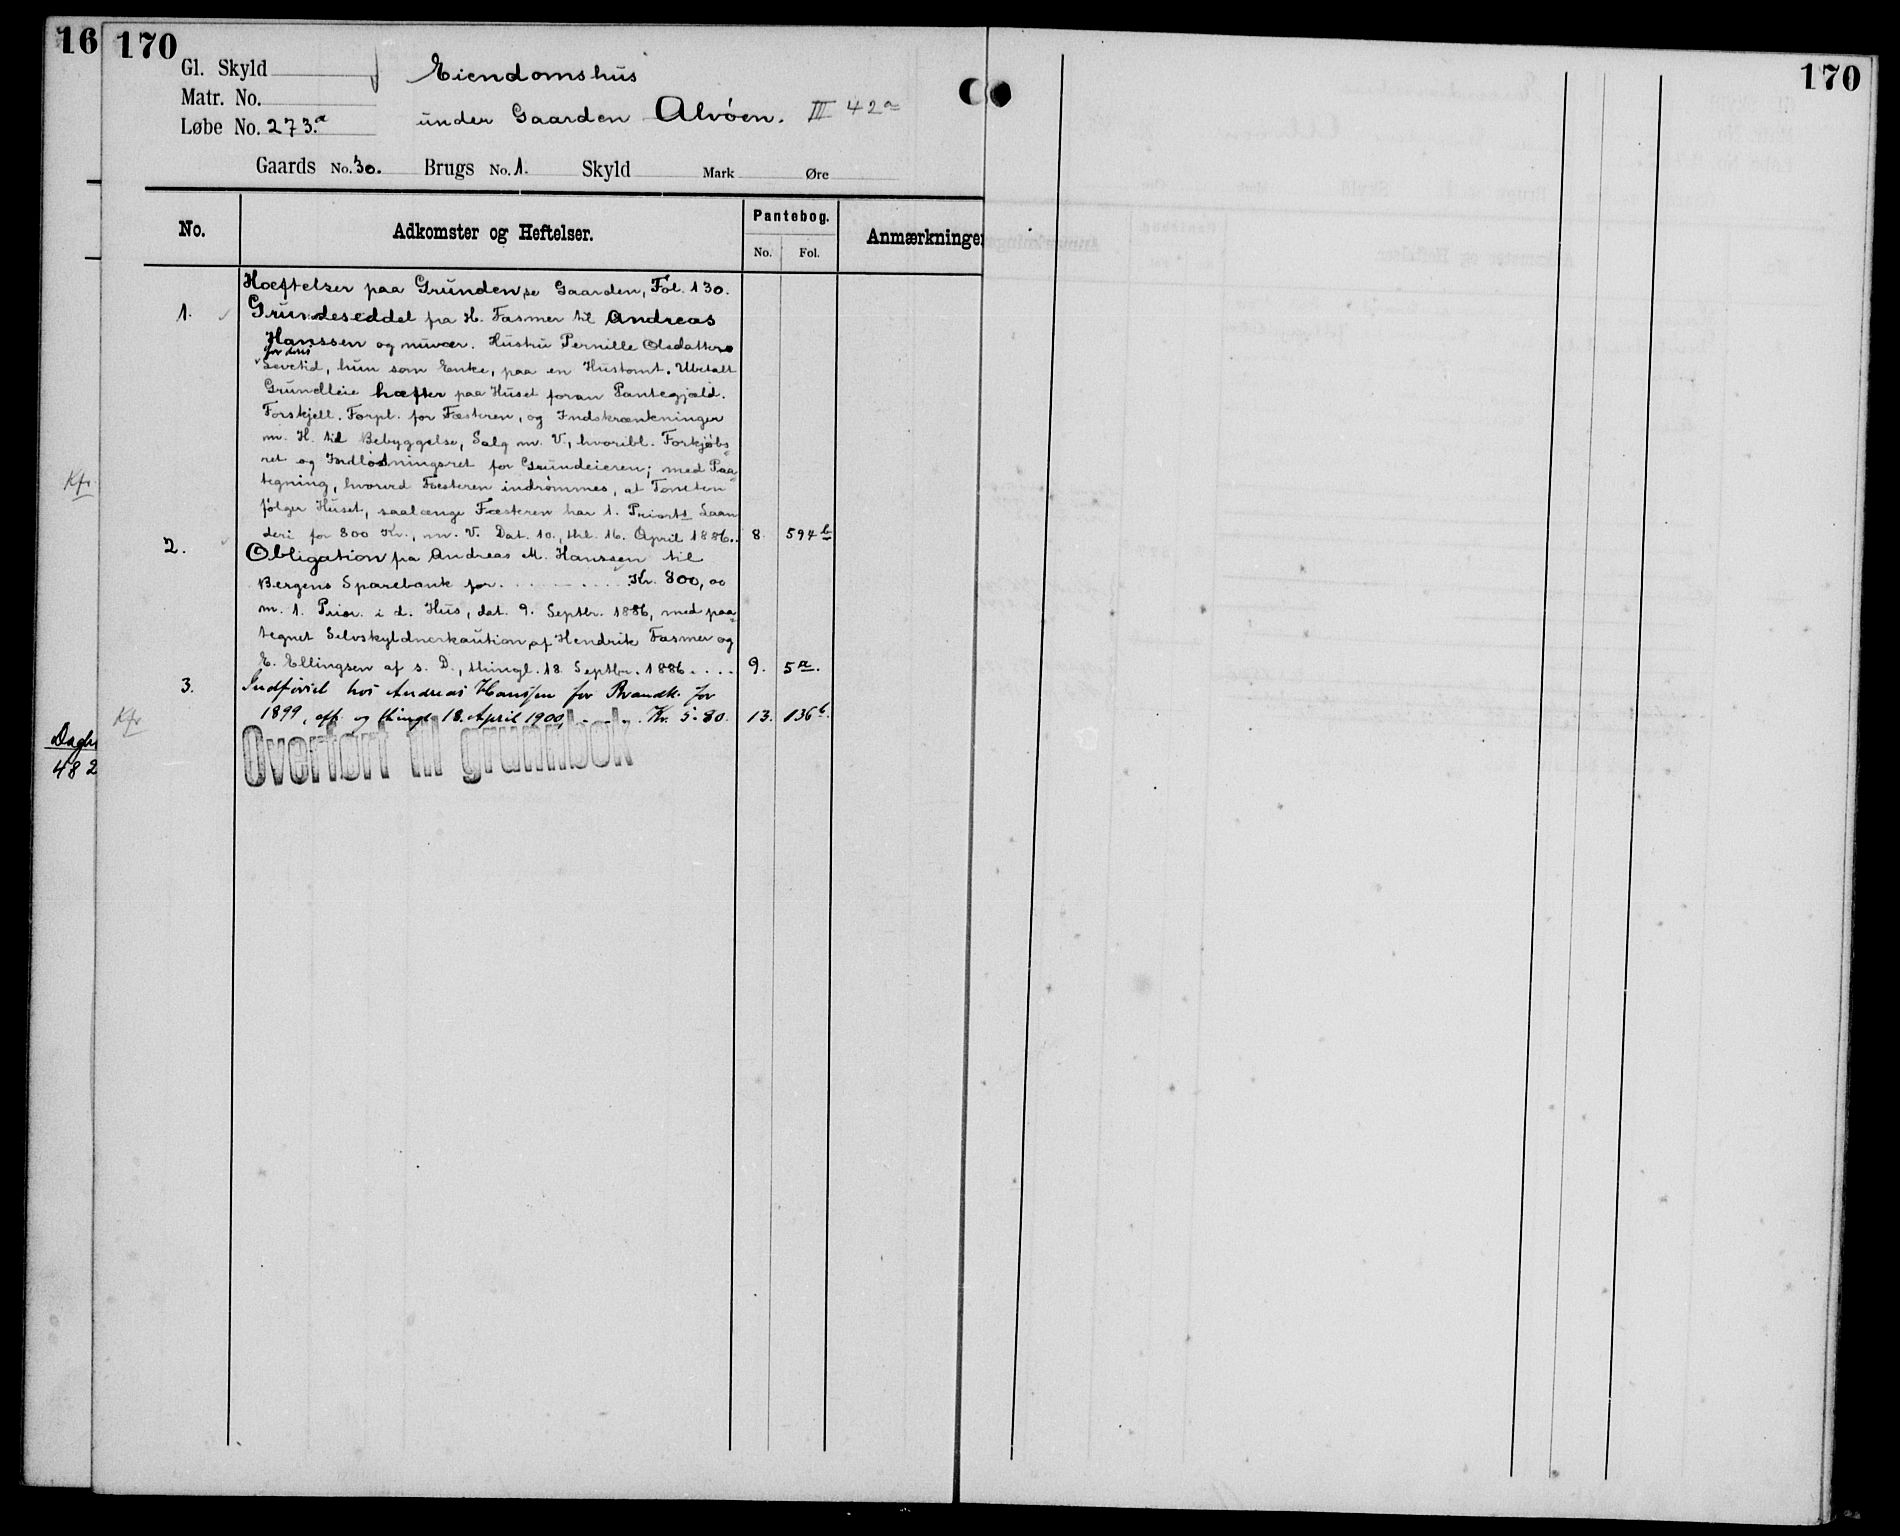 16
170
170
Gl. Skyld
Matr. No.
Løbe No. 273.a
Eiendomshus
under Gaarden Alvöen. III 42a
Gaards No. 30. Brugs No. 1. Skyld Mark Øre
No. Adkomster og Heftelser. Pantebog. No. Fol. Anmærkninger
Hæftelser paa Grunden, se Gaarden, Fol. 130.
1. Grundeseddel fra H. Fasmer til Andreas
Hanssen og nuvær. Hustru Pernille Olsdatter
for deres
Levetid, hun som Enke, paa en Hustomt. Ubetalt
Grundleie hæfter paa Huset foran Pantegjæld.
Forskjell. Forpl. for Fæsteren, og Indskrænkninger
m. H. til Bebyggelse, Salg m. V., hvoribl. Forkjøbs
ret og Indlösningsret for Grundeieren; med Paa
tegning, hvorved Fæsteren indrömmes, at Tomten
fölger Huset, saalænge Fæsteren har 1. Priorts Laan
deri for 800 Kr., m. V. Dat. 10., thl. 16. April 1886. 8. 594b
2. Obligation fra Andreas M. Hanssen til
Bergens Sparebank for Kr. 800,00
m. 1. Prior. i d. Hus, dat. 9. Septbr. 1886, med paa
tegnet Selvskyldnerkaution af Hendrik Fasmer og
E. Ellingsen af s. D., thingl. 18 Septbr. 1886 9. 5a.
3. Indförsel hos Andreas Hanssen for Brandk. for
1899, aff. og thingl. 18. April 1900, Kr. 5.80. 13. 136b.
Overført til grunnbok
Kfr.
Kfr
Dagb
482